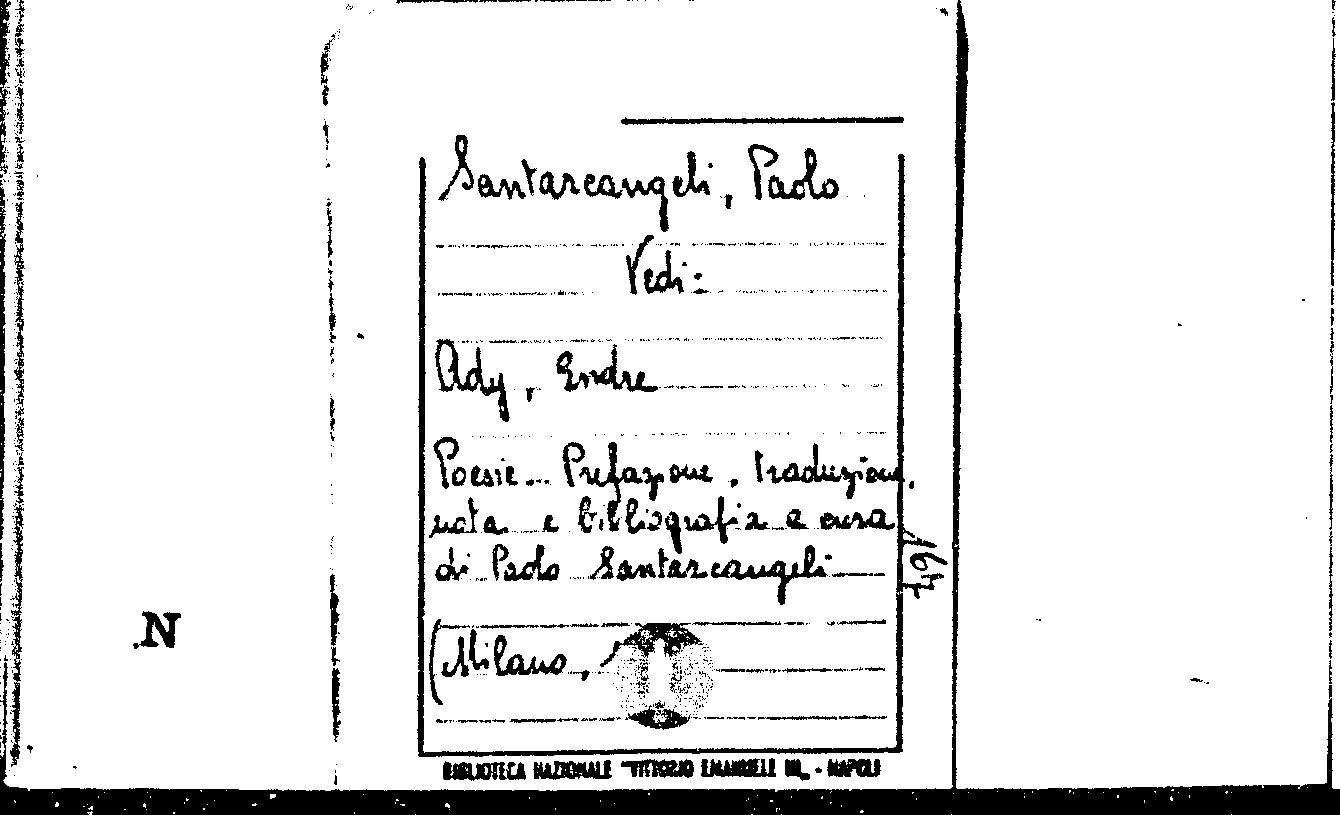 Santarcangeli, Paolo
Vedi:
Ady, Endre
Poesie... Prefazione, traduzione,
nota e bibliografia a cura
di Paolo Santarcangeli
(Milano,
N
BIBLIOTECA NAZIONALE "VITTORIO EMANUELE III" - NAPOLI